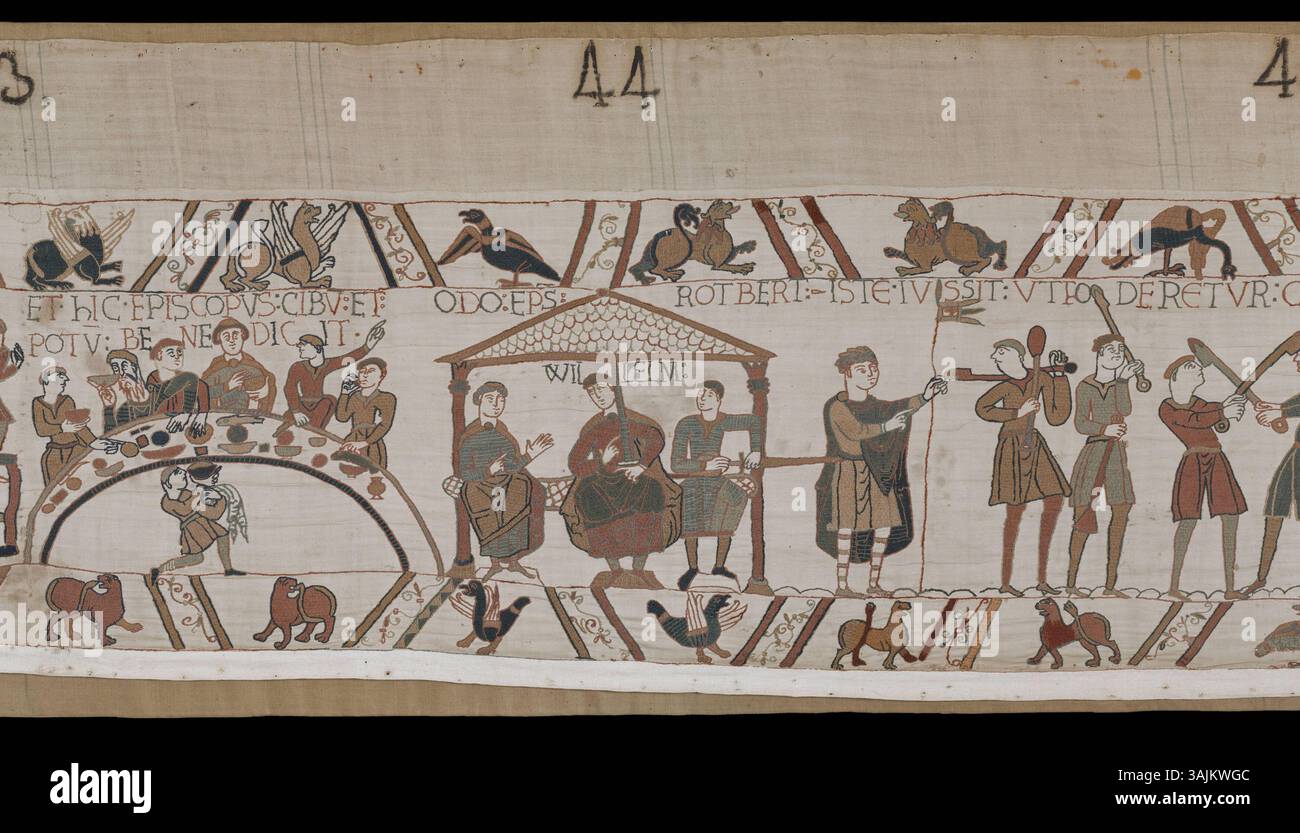 3 44 4
ET hIC·EPISCOPVS:CIBV:ET:
POTV: BE NE DIC IT·
ODO:EPS:
WILLELM:
ROTBERT:-ISTE:IVSSIT:VTFODERETVR:C
a
alamy
Image ID: 3AJKWGC
www.alamy.com